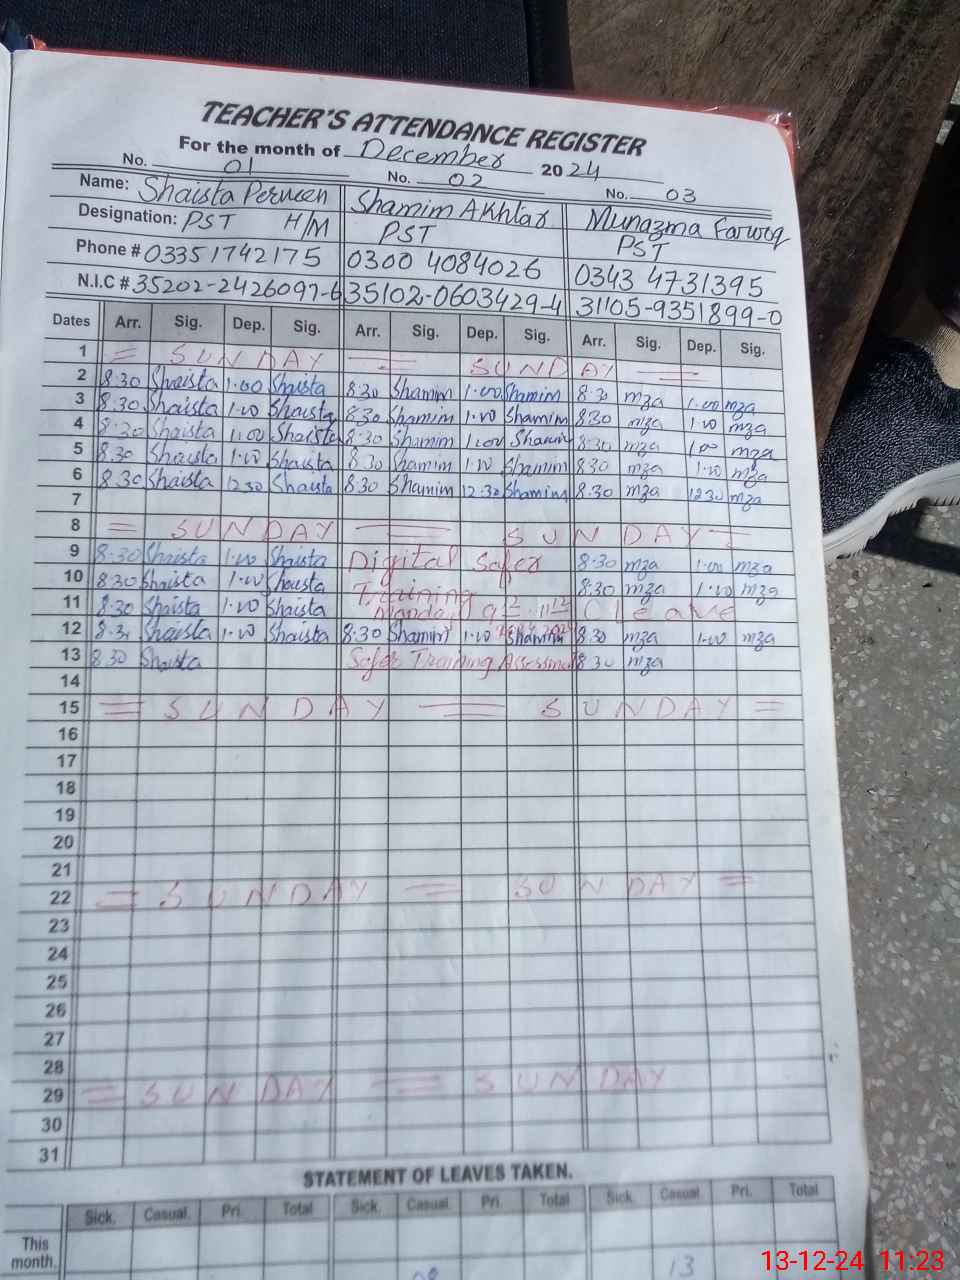 TEACHER'S ATTENDANCE REGISTER
For the month of December 2024
No. 01 No. 02 No. 03
Name: Shaista Perveen Shamim Akhtar Munazma Farooq
Designation: PST H/M PST PST
Phone # 03351742175 0300 4084026 0343 4731395
N.I.C # 35202-2426097-6 35102-0603429-4 31105-9351899-0
Dates Arr. Sig. Dep. Sig. Arr. Sig. Dep. Sig. Arr. Sig. Dep. Sig.
1 = SUNDAY = SUNDAY =
2 8.30 Shaista 1.00 Shaista 8.30 Shamim 1.00 Shamim 8.30 mza 1.00 mza
3 8.30 Shaista 1.00 Shaista 8.30 Shamim 1.00 Shamim 8.30 mza 1.00 mza
4 8.30 Shaista 1.00 Shaista 8.30 Shamim 1.00 Shamim 8.30 mza 1.00 mza
5 8.30 Shaista 1.00 Shaista 8.30 Shamim 1.00 Shamim 8.30 mza 1.00 mza
6 8.30 Shaista 12.30 Shaista 8.30 Shamim 12.30 Shamim 8.30 mza 12.30 mza
7
8 = SUNDAY = SUNDAY =
9 8.30 Shaista 1.00 Shaista Digital Safer 8.30 mza 1.00 mza
10 8.30 Shaista 1.00 Shaista Training 8.30 mza 1.00 mza
11 8.30 Shaista 1.00 Shaista Leave
12 8.30 Shaista 1.00 Shaista 8.30 Shamim 1.00 Shamim 8.30 mza 1.00 mza
13 8.30 Shaista Safer Training Assessment 8.30 mza
14
15 = SUNDAY = SUNDAY =
16
17
18
19
20
21
22 = SUNDAY = SUNDAY =
23
24
25
26
27
28
29 = SUNDAY = SUNDAY
30
31
STATEMENT OF LEAVES TAKEN.
Sick. Casual. Pri. Total Sick. Casual. Pri. Total Sick. Casual. Pri. Total
This
month.
13
13-12-24 11:23